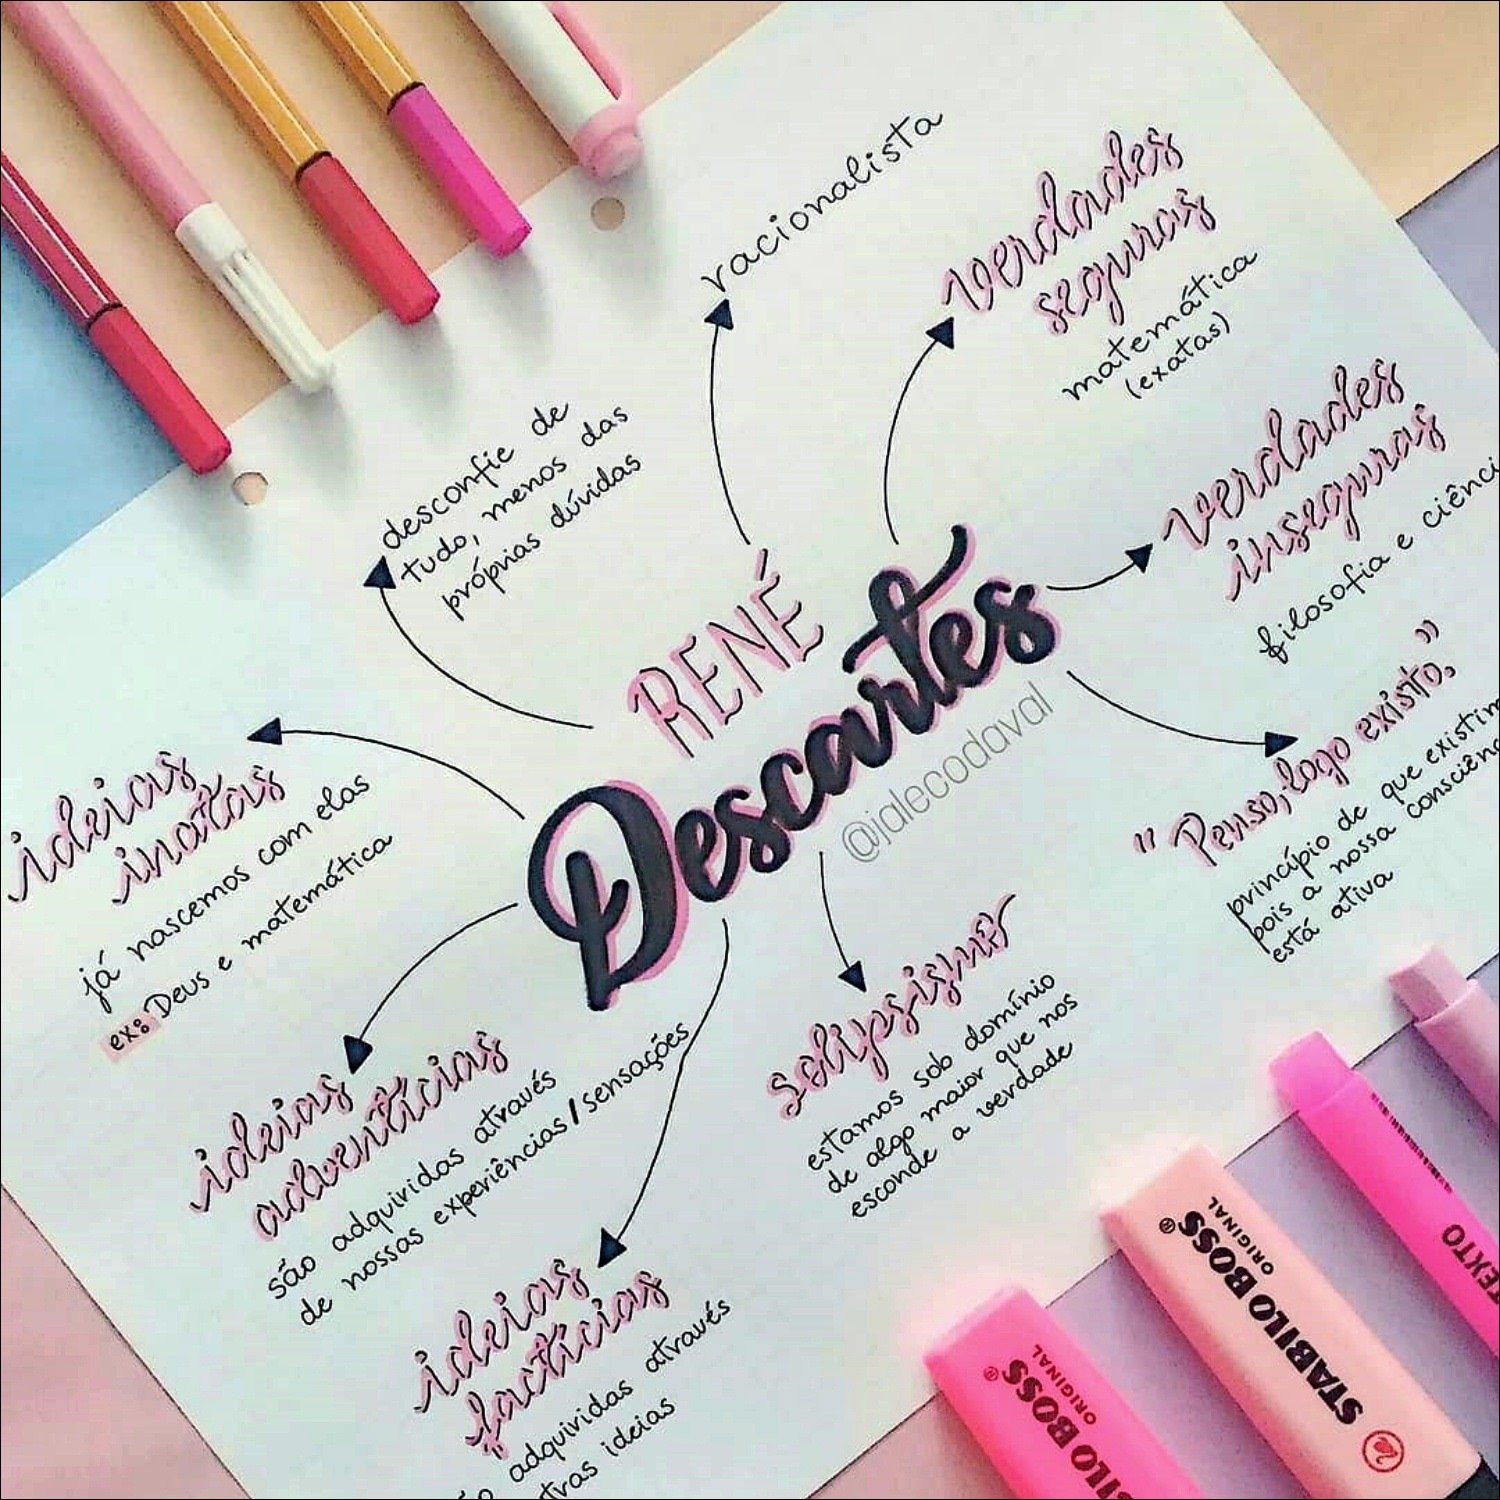 RENÉ
Descartes
@jalecodaval
racionalista
verdades
seguras
matemática
(exatas)
verdades
inseguras
filosofia e ciênci
" Penso, logo existo, "
princípio de que existim
pois a nossa consciênc
está ativa
solipsismo
estamos sob domínio
de algo maior que nos
esconde a verdade
ideias
factícias
adquiridas através
tras ideias
ideias
adventícias
são adquiridas através
de nossas experiências/sensações
ideias
inatas
já nascemos com elas
ex: Deus e matemática
desconfie de
tudo, menos das
próprias dúvidas
STABILO BOSS®
ORIGINAL
BILO BOSS®
ORIGINAL
TEXTO